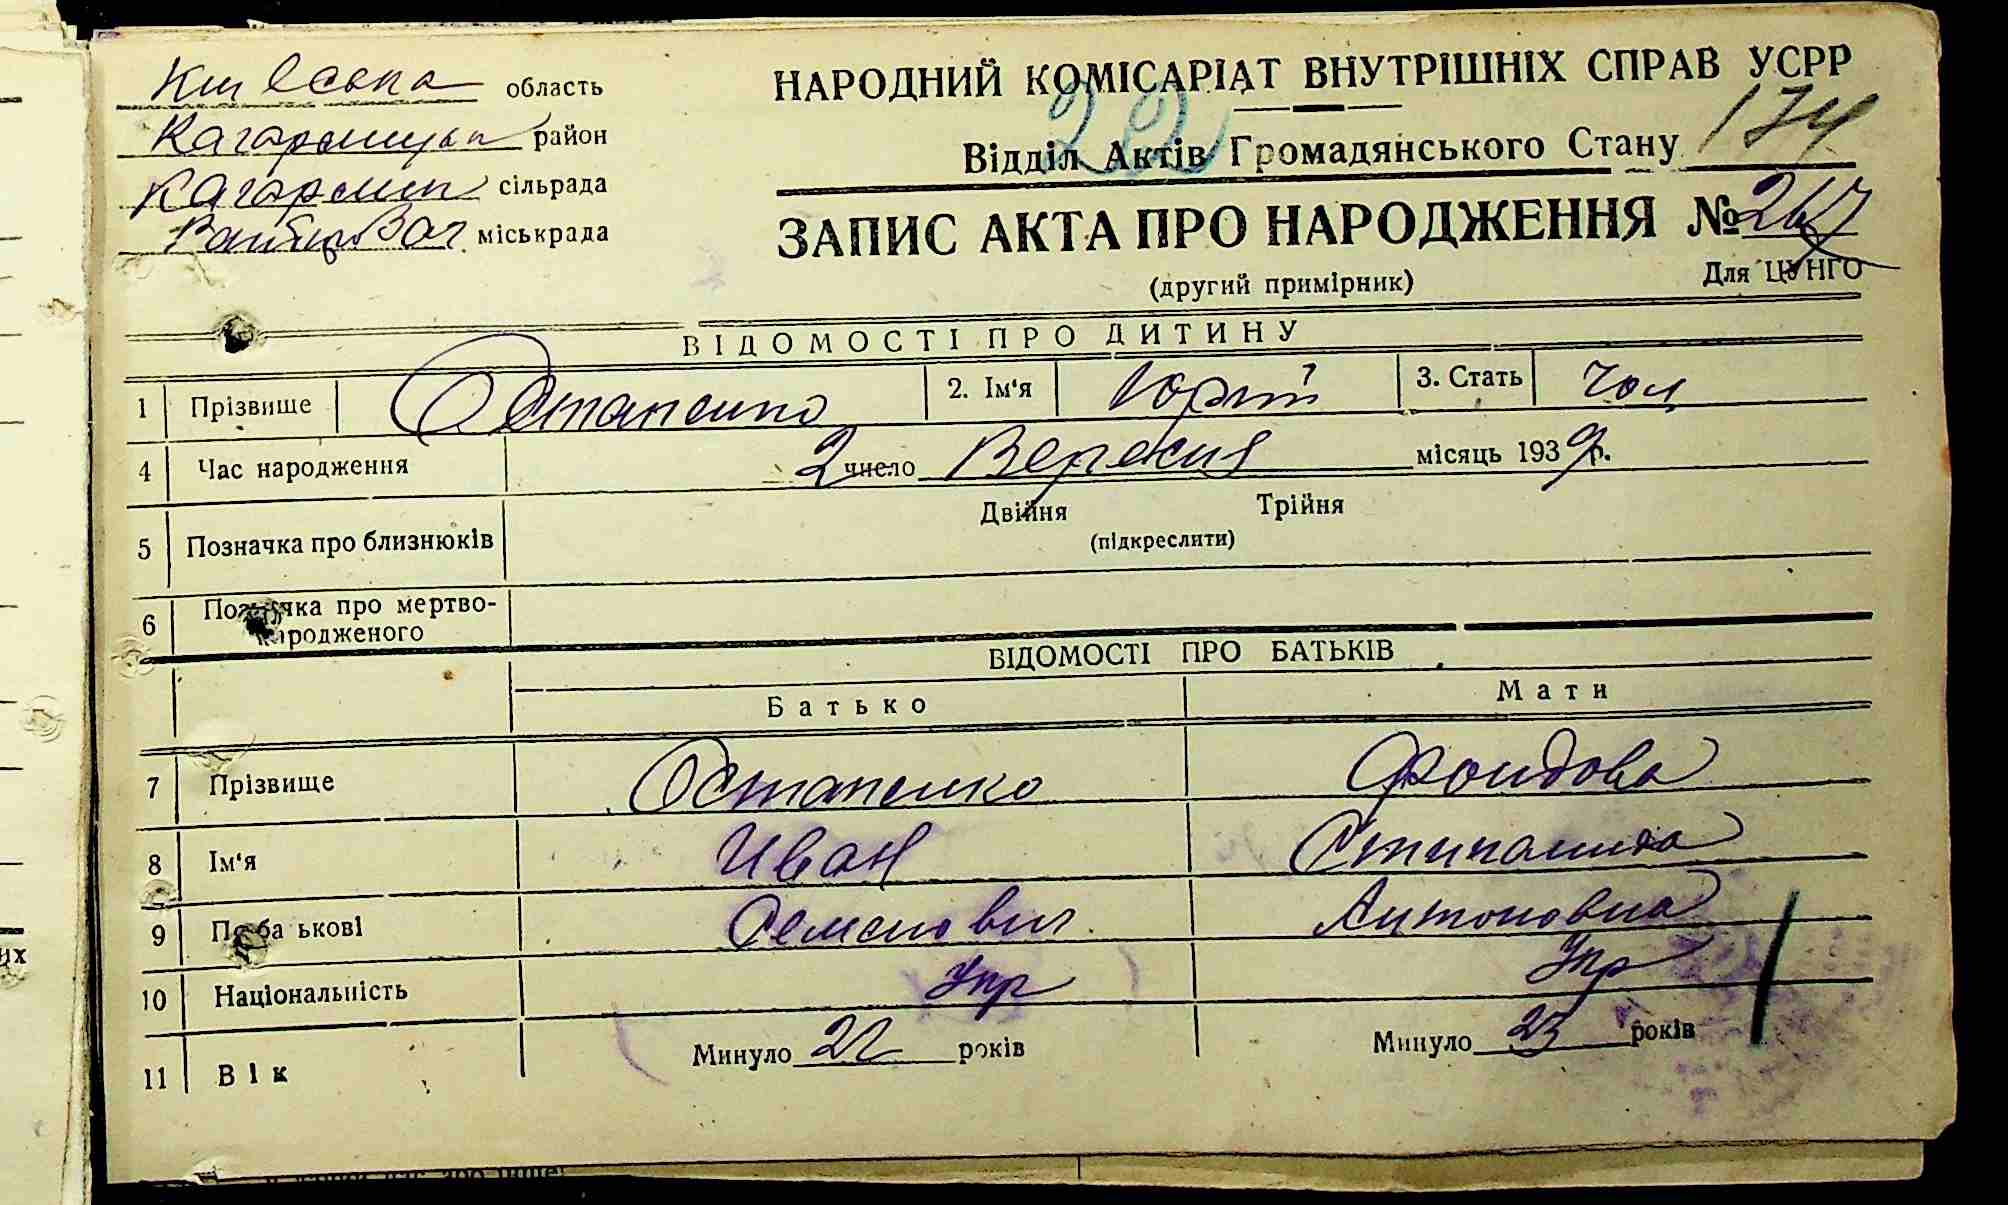 Київська область
НАРОДНИЙ КОМІСАРІАТ ВНУТРІШНІХ СПРАВ УСРР
22
Кагарлицьк район
Відділ Актів Громадянського Стану 174
Кагарлик сільрада
міськрада
ЗАПИС АКТА ПРО НАРОДЖЕННЯ №
(другий примірник)
Для ЦУНГО
ВІДОМОСТІ ПРО ДИТИНУ
1 Прізвище Остапенко 2. Ім'я Юрій 3. Стать чол
4 Час народження 2 число Вересня місяць 1939 р.
Двійня Трійня
5 Позначка про близнюків (підкреслити)
6 Позначка про мертво-
народженого
ВІДОМОСТІ ПРО БАТЬКІВ
Батько Мати
7 Прізвище Остапенко
8 Ім'я Иван
9 По батькові Семенович Антоновна
10 Національність Укр Укр
11 Вік Минуло 22 років Минуло 23 років